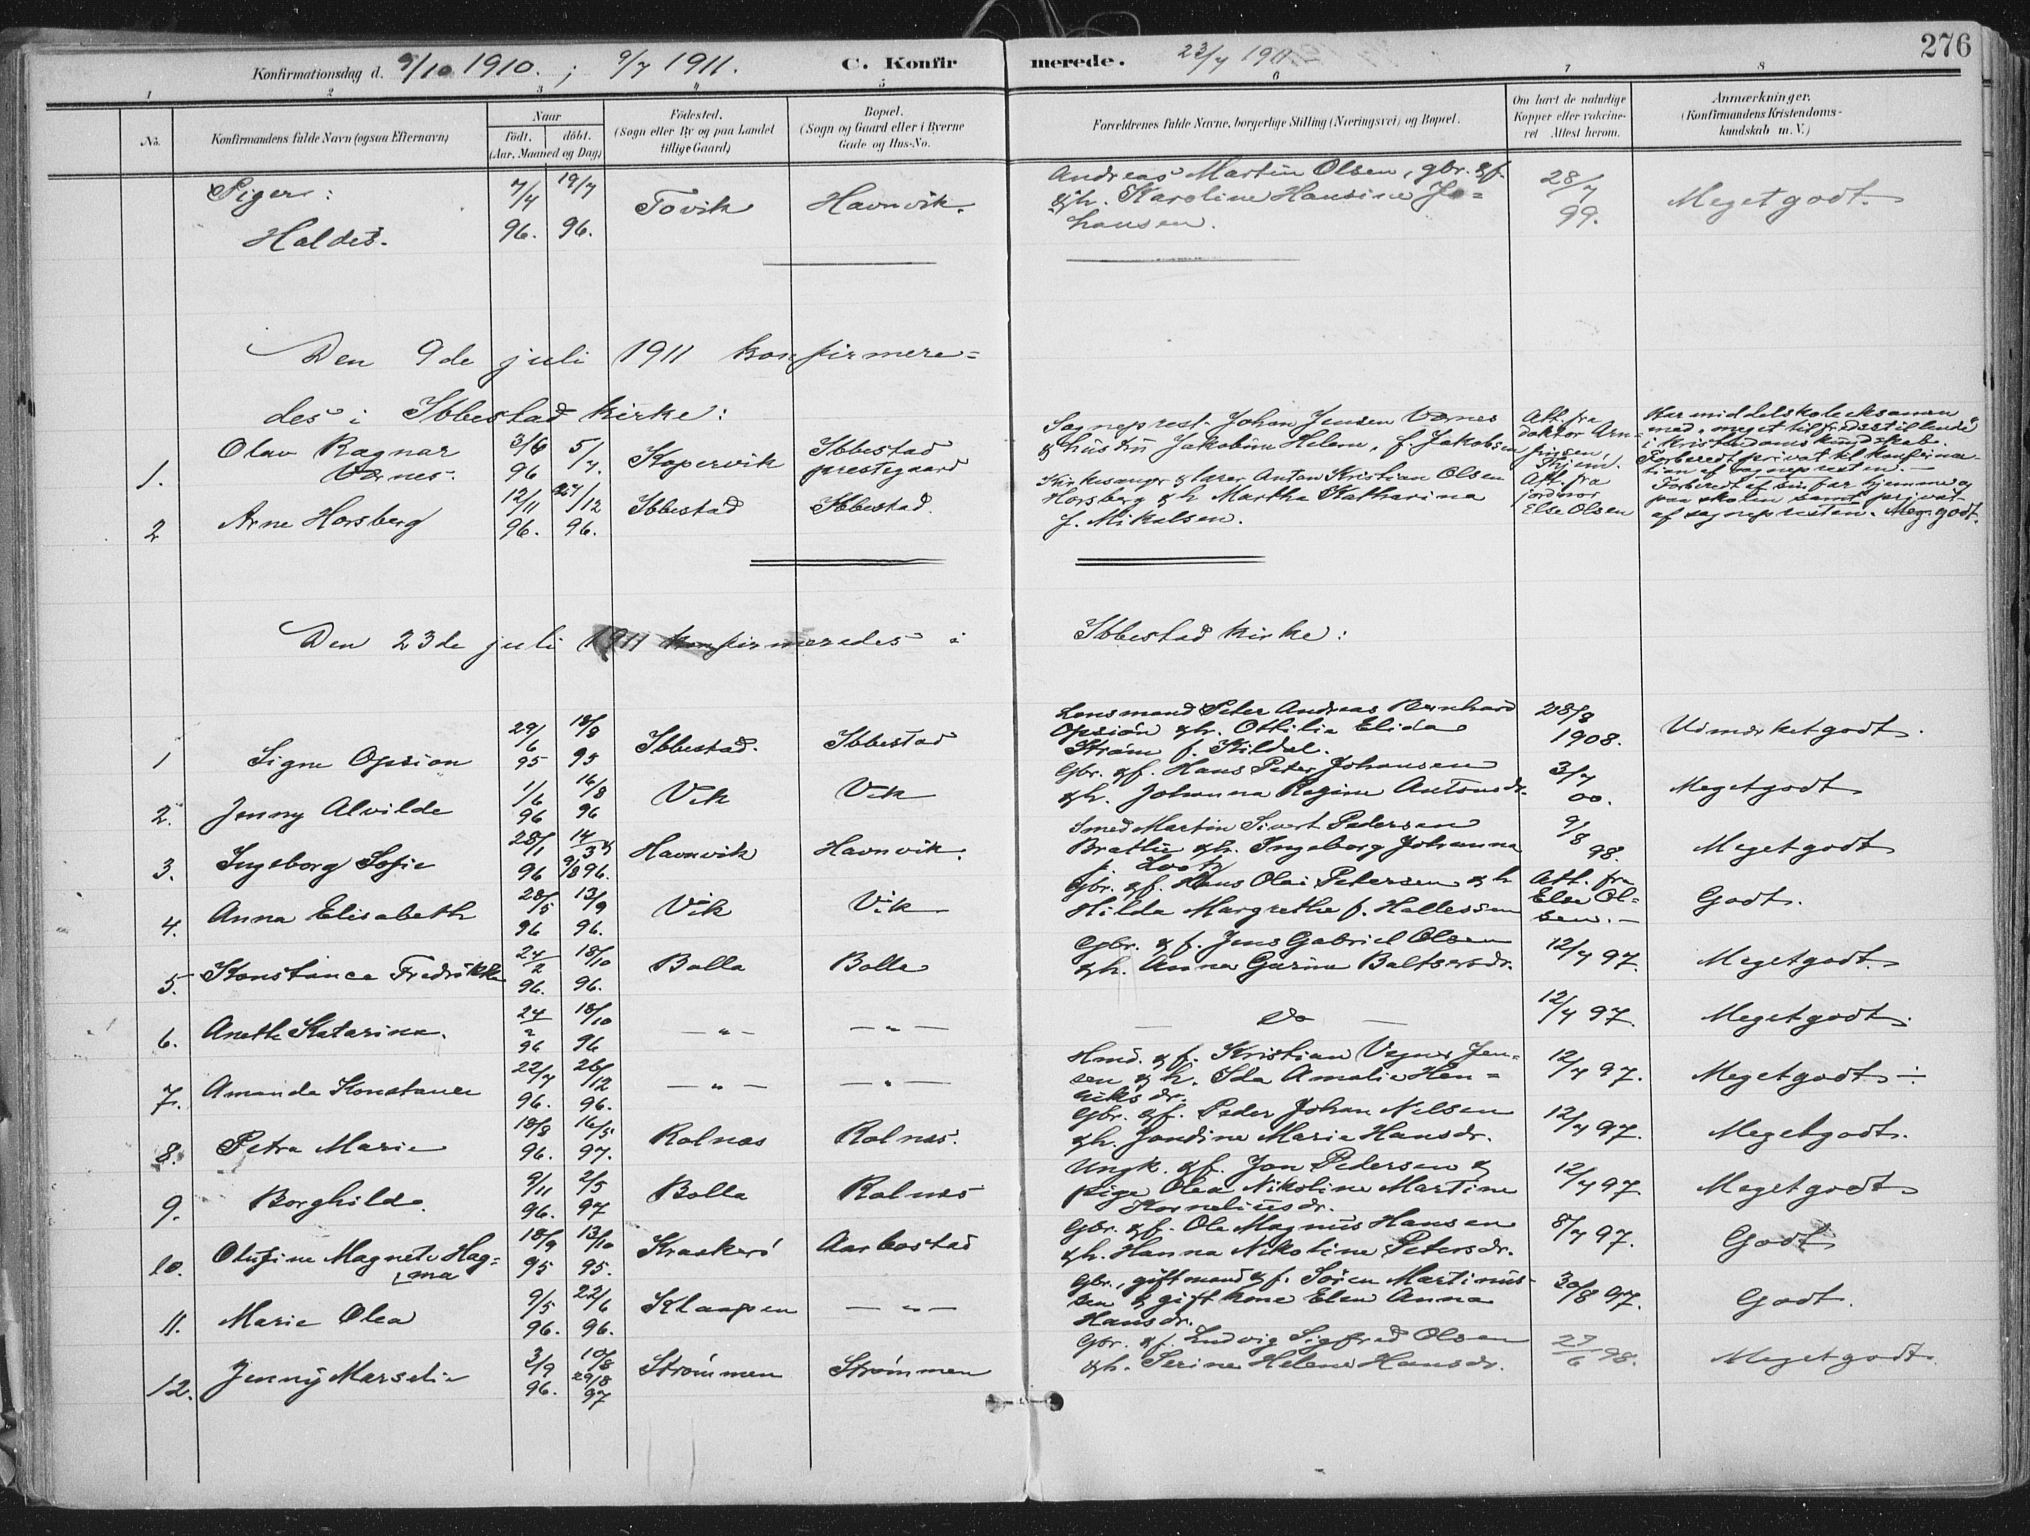 276
Konfirmationsdag d. 9/10 1910. ; 9/7 1911. C. Konfirmerede. 23/7 1911
1 2 3 4 5 6 7 8
No. Konfirmandens fulde Navn (ogsaa Efternavn) Naar født, døbt. (Aar, Maaned og Dag) Fødested. (Sogn eller By og paa Landet tillige Gaard) Bopæl. (Sogn og Gaard eller i Byerne Gade og Hus-No. Forældrenes fulde Navne, borgerlige Stilling (Næringsvei) og Bopæl. Om havt de naturlige Kopper eller vaccineret Attest herom. Anmærkninger. (Konfirmandens Kristendomskundskab m. V.)
Piger:
Haldis. 7/4 96. 19/7 96. Tovik Havnvik. Andreas Martin Olsen, gbr. & f. & h. Karoline Hansine Johansen. 28/7 99. Megetgodt.
Den 9de juli 1911 konfirmere-
des i Ibbestad kirke:
1. Olav Ragnar Vornes. 3/6 96 5/7. Kopervik Ibbestad prestegaard Sogneprest Johan Jensen Vornes & hustru Jakobine Helene, f. Jakobsen Att. fra doktor Hjem. Har middelskoleeksamen med "meget tilfredsstillende" i kristendomskundskab. Forberedt privat til konfirmation af sognepresten.
2 Arne Horsberg 12/11 96. 27/12 96. Ibbestad Ibbestad. Kirkesanger & lærer Anton Kristian Olsen Horsberg & h Martha Katharina f. Mikalsen. Att. fra jordmor Else Olsen Forberedt af sin far hjemme og paa skolen samt privat af sognepresten. Meg. godt.
Den 23de juli 1911 konfirmeredes i Ibbestad kirke:
1 Signe Opsion 29/6 95 18/8 95 Ibbestad. Ibbestad Lensmand Peter Andreas Bernhard Opsión & h. Ottilia Elida Strøm f. Kildal. 28/8 1908. Udmerketgodt.
2. Jenny Alvilde 1/6 96 16/8 96 Vik Vik Gbr. & f. Hans Peter Johansen & h. Johanna Regine Antonsdr. 3/7 00. Megetgodt
3. Ingeborg Sofie 28/1 96 14/3 9/8 96. Havnvik Havnvik. Smed Martin Sivert Pedersen Brattli & h. Ingeborg Johanna f. Lootz 9/8 98. Megetgodt
4. Anna Elisabeth 28/5 96 13/9 96. Vik Vik Gbr. & f. Hans Olai Petersen & h Hilda Margrethe f. Hallessen Att. fra Else Olsen. Godt.
5. Konstance Fredrikke 24/2 96. 18/10 96. Bolla Bolla Gbr. & f. Jens Gabriel Olsen & h. Anna Gurina Baltsersdr. 12/7 97. Megetgodt.
6. Anethe Katarina. 24/2 96 18/10 96 — " — — " — — Do — 12/7 97. Megetgodt.
7. Amanda Konstance 22/7 96. 26/12 96. — " — — " — Hmd. & f. Kristian Vegner Jensen & h. Ida Amalie Henriksdr. 12/7 97. Megetgodt
8. Petra Marie 18/8 96. 16/5 97. Rolnæs Rolnæs. Gbr. & f. Peder Johan Nilsen & h. Jondine Marie Hansdr. 12/7 97. Megetgodt.
9. Borghild. 9/11 96. 2/5 97 Bolla Rolnæs Ungk. & f. Jon Pedersen & pige Olea Nikoline Martine Korneliusdr. 12/7 97. Megetgodt
10. Olufine Magnete Hagma 18/9 95 13/10 95. Kraakerø Aarbostad Gbr. & f. Ole Magnus Hansen & h. Hanna Nikoline Petersdr. 8/7 97. Godt
11. Marie Olea 9/5 96. 22/6 96. Klaapen — " — Gbr., gift mand & f. Søren Martinussen & gift kone Elen Anna Hansdr. 30/8 97. Godt.
12. Jenny Marselie 3/9 96. 10/8 29/8 97 Strømmen Strømmen Gbr. & f. Ludvig Sigfred Olsen & h. Serine Helene Hansdr. 27/6 98. Megetgodt.